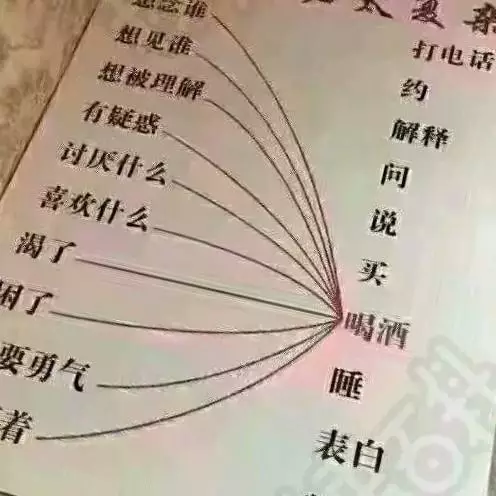 太复杂
想念谁
想见谁
想被理解
有疑惑
讨厌什么
喜欢什么
渴了
困了
要勇气
着
打电话
约
解释
问
说
买
喝酒
睡
表白